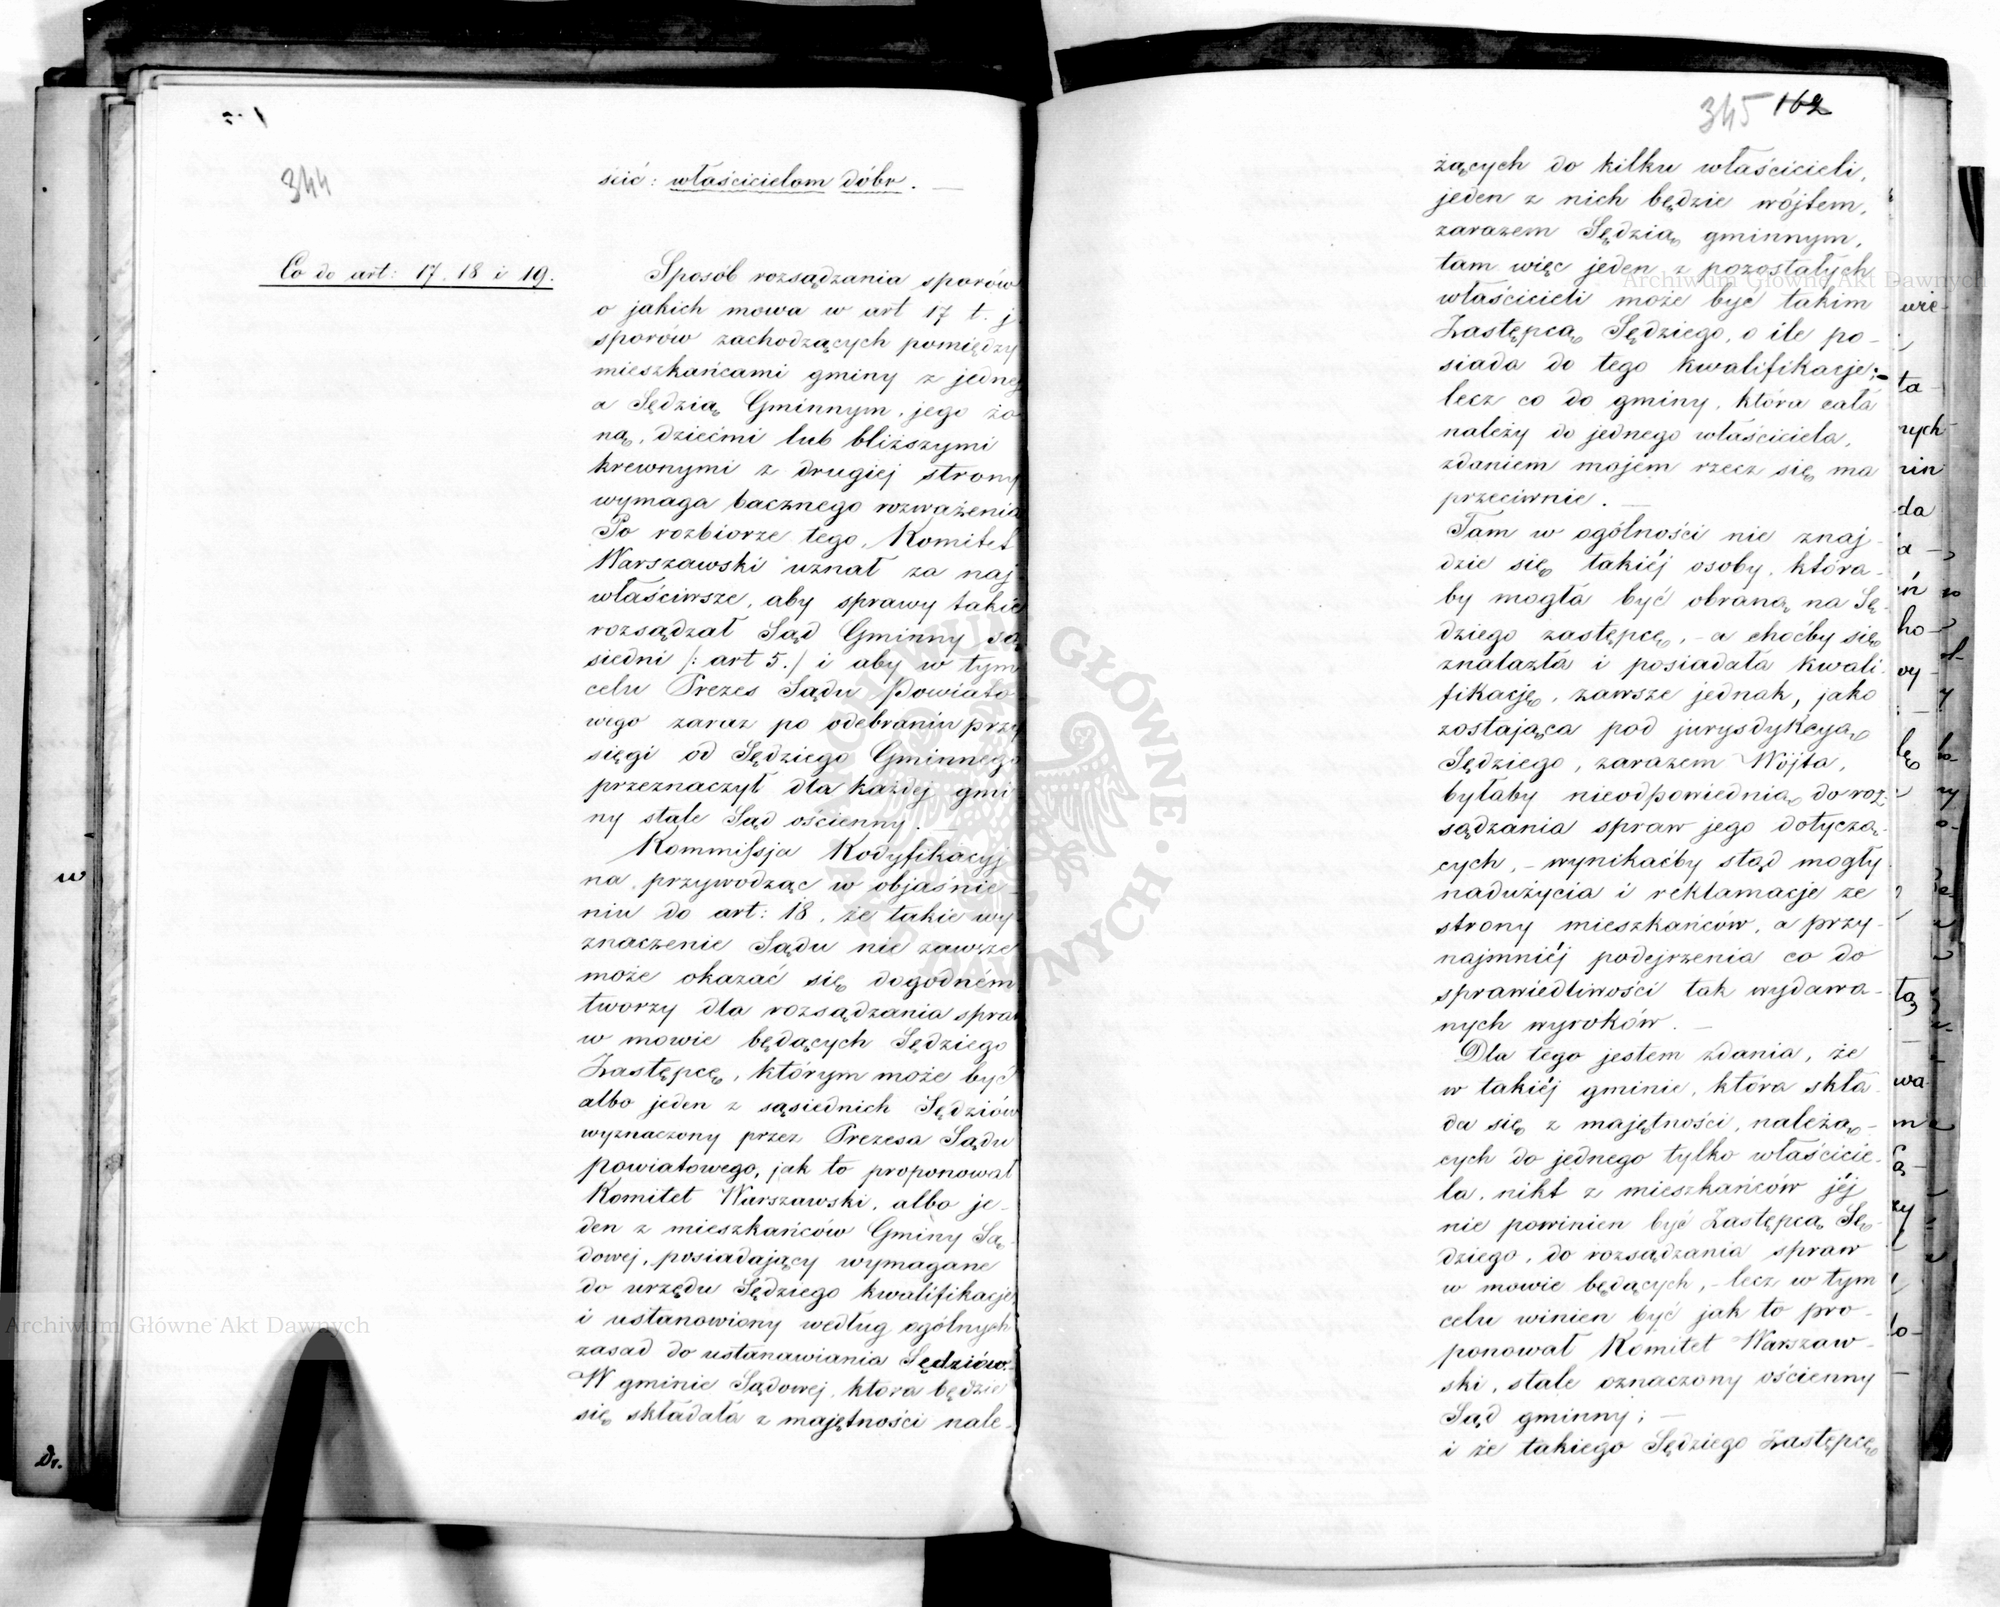 344
ścić: właścicielom dóbr. —
Co do art: 17. 18 i 19.
Sposób rozsądzania sporów
o jakich mowa w art 17 t. j.
sporów zachodzących pomiędzy
mieszkańcami gminy z jednej
a Sędzią Gminnym, jego żo
ną, dziećmi lub bliższymi
krewnymi z drugiej strony
wymaga bacznego rozważenia
Po rozbiorze tego, Komitet
Warszawski uznał za naj
właściwsze, aby sprawy takie
rozsądzał Sąd Gminny są
siedni /: art 5./ i aby w tym
celu Prezes Sądu Powiato
wego zaraz po odebraniu przy
sięgi od Sędziego Gminnego
przeznaczył dla każdej gmi
ny stale Sąd ościenny. —
Kommissja Kodyfikacyj
na, przywodząc w objaśnie-
niu do art: 18, że takie wy-
znaczenie Sądu nie zawsze
może okazać się dogodném
tworzy dla rozsądzania spraw
w mowie będących Sędziego
Zastępcę, którym może być
albo jeden z sąsiednich Sędziów
wyznaczony przez Prezesa Sądu
Powiatowego, jak to proponował
Komitet Warszawski, albo je-
den z mieszkańców Gminy Są-
dowej, posiadający wymagane
do urzędu Sędziego kwalifikacje,
i ustanowiony według ogólnych
zasad do ustanawiania Sędziów.
W gminie Sądowej, która będzie
się składała z majętności nale-
345 162
żących do kilku właścicieli,
jeden z nich będzie wójtem,
zarazem Sędzią gminnym,
tam więc jeden z pozostałych
właścicieli może być takim
Zastępcą Sędziego, o ile po-
siada do tego kwalifikacje;-
lecz co do gminy, która cała
należy do jednego właściciela,
zdaniem mojém rzecz się ma
przeciwnie. —
Tam w ogólności nie znaj-
dzie się takiéj osoby, która-
by mogła być obraną na Sę-
dziego zastępcę, - a choćby się
znalazła i posiadała kwali-
fikację, zawsze jednak, jako
zostająca pod jurysdykcyą
Sędziego, zarazem Wójta,
byłaby nieodpowiednią do roz-
sądzania spraw jego dotyczą-
cych, - wynikaćby stąd mogły
nadużycia i reklamacje ze
strony mieszkańców, a przy-
najmniéj podejrzenia co do
sprawiedliwości tak wydawa-
nych wyroków. —
Dla tego jestem zdania, że
w takiéj gminie, która skła-
da się z majętności, należą-
cych do jednego tylko właścicie-
la, nikt z mieszkańców jéj
nie powinien być Zastępcą Sę-
dziego, do rozsądzania spraw
w mowie będących, - lecz w tym
celu winien być jak to pro-
ponował Komitet Warszaw-
ski, stale oznaczony ościenny
Sąd gminny; —
i że takiego Sędziego Zastępcę
Archiwum Główne Akt Dawnych
Archiwum Główne Akt Dawnych